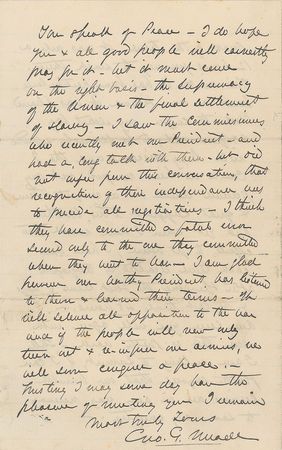 You speak of Peace - I do hope
you & all good people will earnestly
pray for it - but it must come
on the right basis - the supremacy
of the Union & the final settlement
of slavery - I saw the Commissioners
who recently met our President - and
had a long talk with them - but did
not infer from this conversation, that
recognition of their independence was
to precede all negotiations - I think
they have committed a fatal error
second only to the one they committed
when they went to war - I am glad
however our worthy President has listened
to them & learned their terms - It
will silence all opposition to the war
and if the people will now only
turn out & re-inforce our armies, we
will soon conquer a peace. -
Trusting I may some day have the
pleasure of meeting you I remain
most truly yours
Geo. G. Meade